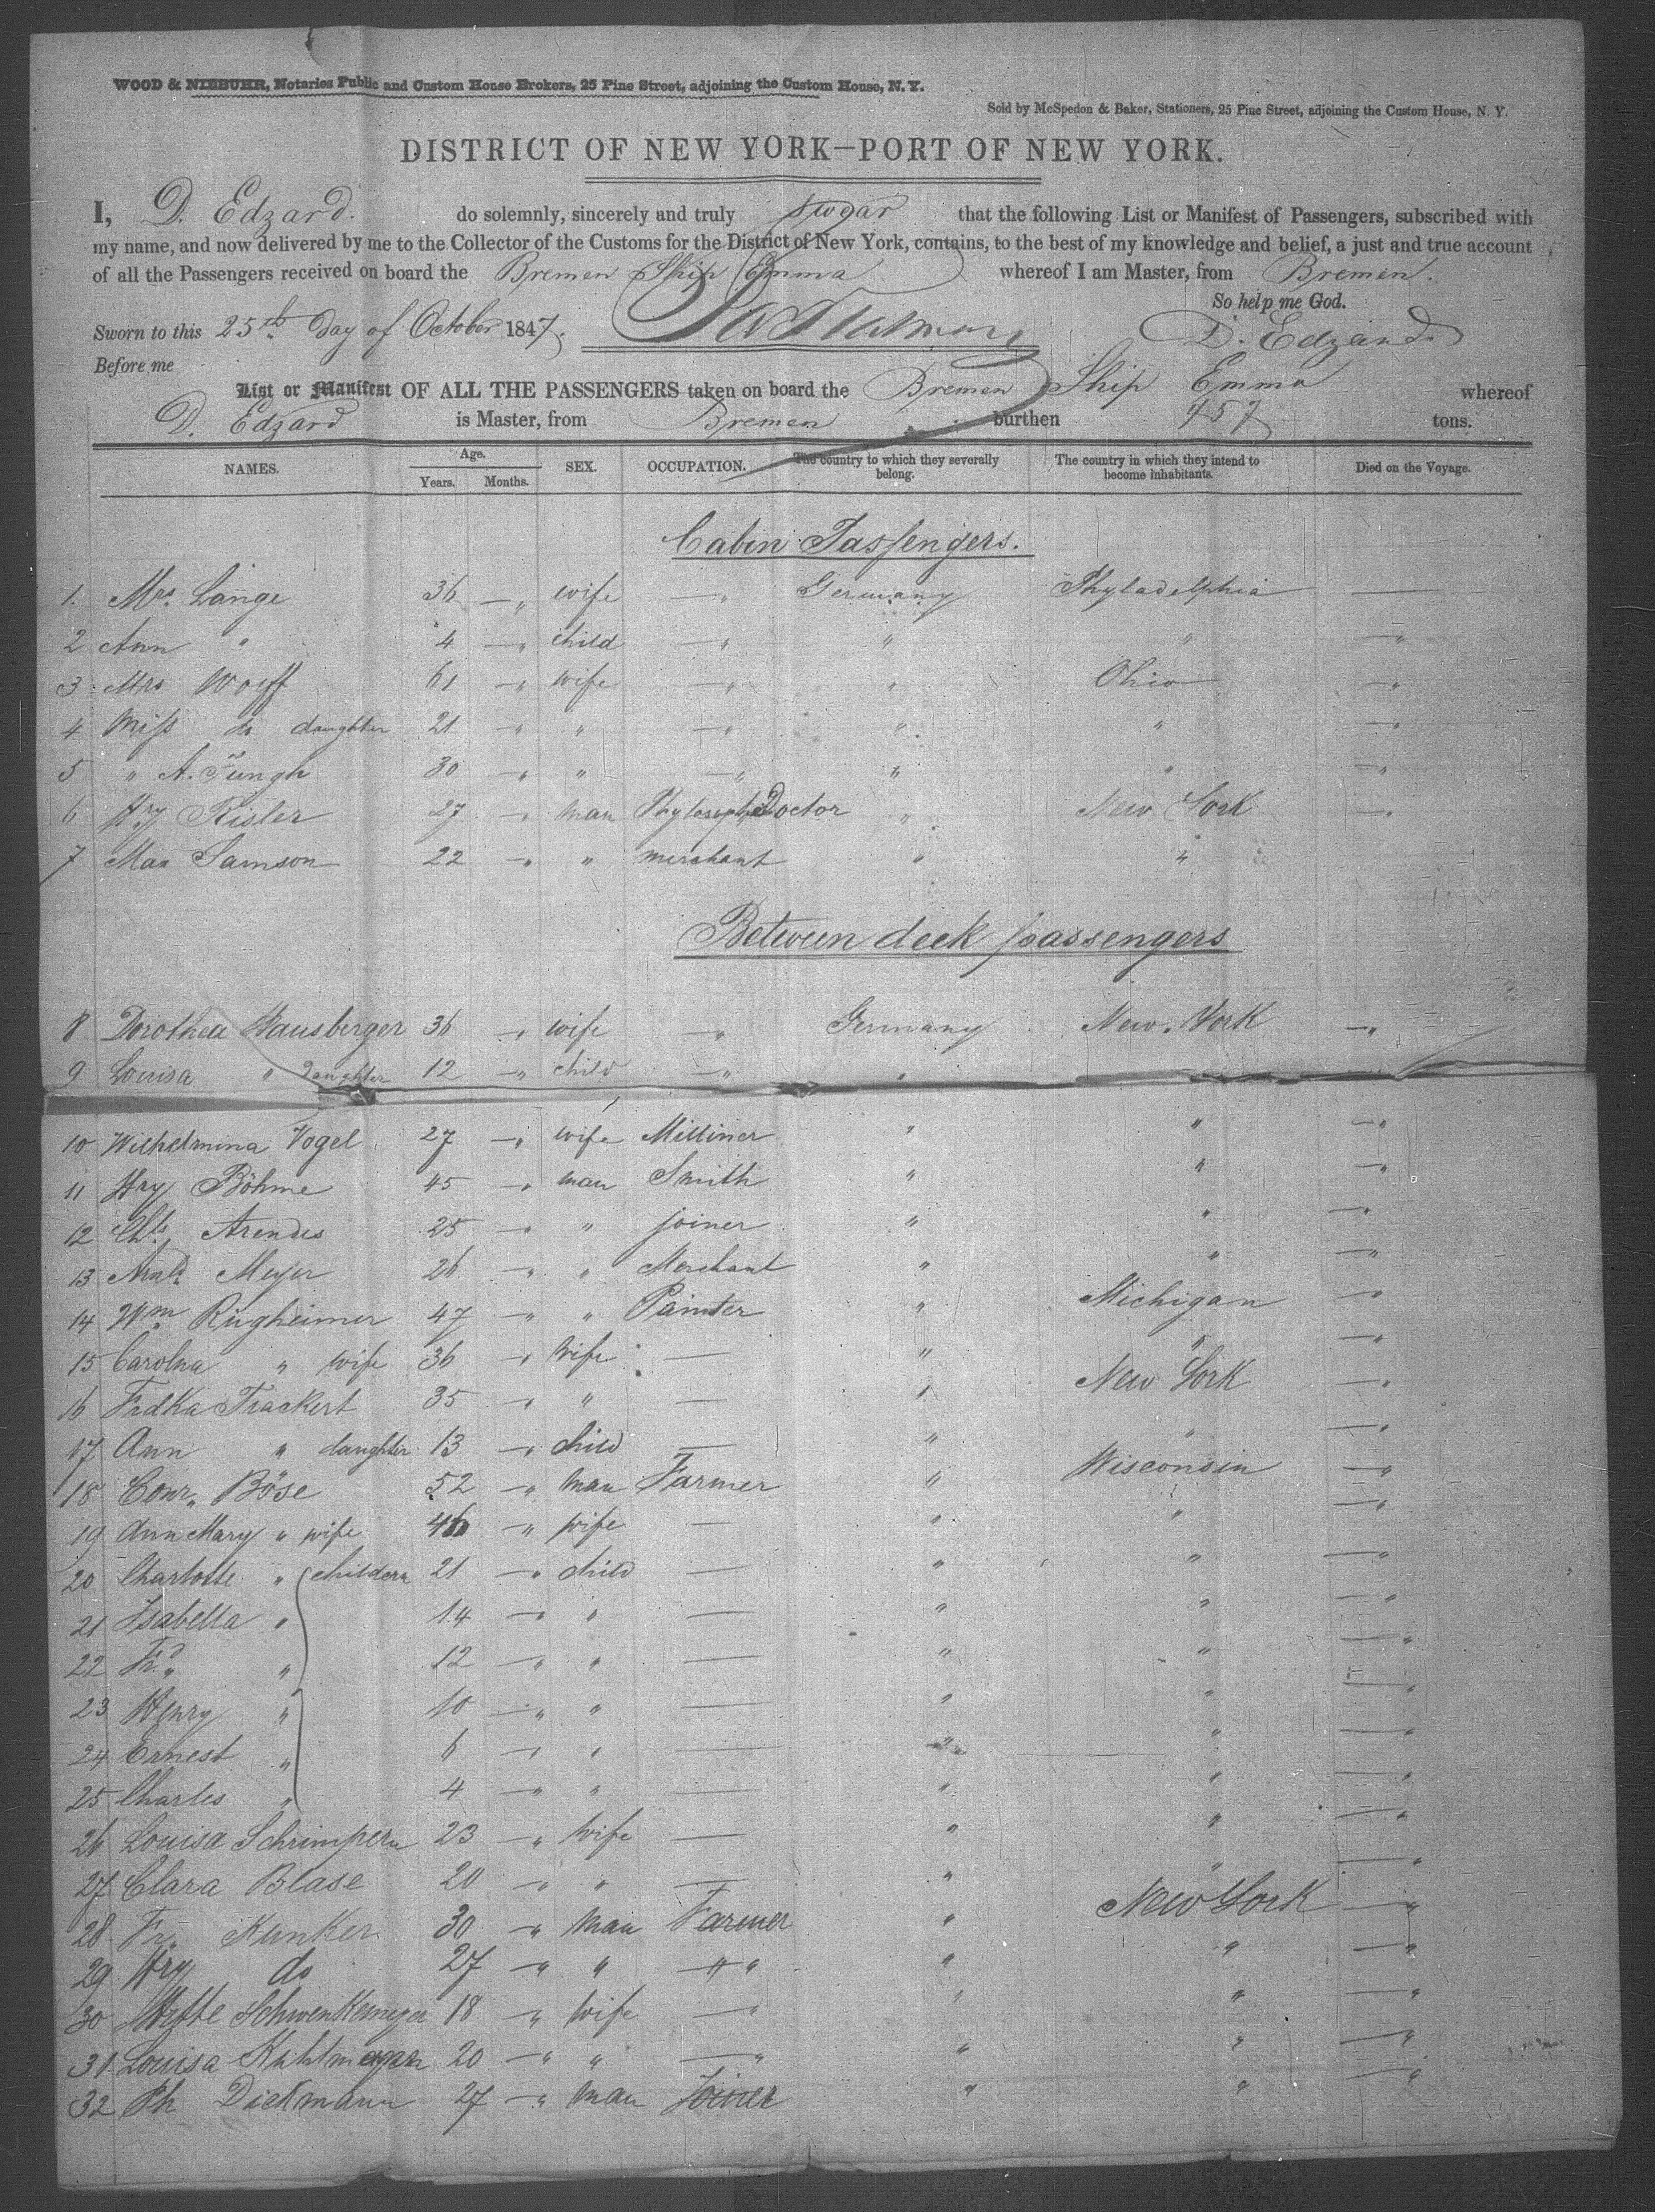 WOOD & NIEBUHR, Notaries Public and Custom House Brokers, 25 Pine Street, adjoining the Custom House, N. Y.
Sold by McSpedon & Baker, Stationers, 25 Pine Street, adjoining the Custom House, N. Y.
DISTRICT OF NEW YORK—PORT OF NEW YORK.
I, D. Edzard. do solemnly, sincerely and truly swear that the following List or Manifest of Passengers, subscribed with
my name, and now delivered by me to the Collector of the Customs for the District of New York, contains, to the best of my knowledge and belief, a just and true account
of all the Passengers received on board the Bremen Ship Emma whereof I am Master, from Bremen.
So help me God.
Sworn to this 25th Day of October 1847. D. Edzard
Before me
List or Manifest OF ALL THE PASSENGERS taken on board the Bremen Ship Emma whereof
D. Edzard is Master, from Bremen burthen 457 tons.
NAMES. Age. Years. Months. SEX. OCCUPATION. The country to which they severally belong. The country in which they intend to become inhabitants. Died on the Voyage.
Cabin Passengers.
1. Mrs. Lange 36 — " wife — " Germany Phyladelphia —
2 Ann " 4 — " child — " " " — "
3 Mrs Wolff 61 — " wife — " " Ohio — "
4 Miss do daughter 21 — " " — " " " — "
5 " A. Jungh 30 — " " — " " " — "
6 Hry Risler 27 — " man Doctor " New York — "
7 Max Samson 22 — " " merchant " " — "
Between deck passengers
8 Dorothea Hausberger 36 — " wife — " Germany New York — "
9 Louisa " Daughter 12 — " child — " "
10 Wilhelmina Vogel 27 — " wife Milliner " " — "
11 Hry Böhme 45 — " man Smith " " — "
12 Chs. Arendes 25 — " " joiner " " — "
13 Arnld Meyer 26 — " " Merchant " " — "
14 Wm Rügheimer 47 — " " Painter " Michigan — "
15 Carolna " wife 36 — " Wife — " " — "
16 Frdka Trackert 35 — " " — " New York — "
17 Ann " daughter 13 — " child — " " — "
18 Conr. Böse 52 — " man Farmer " Wisconsin — "
19 Ann Mary " wife 46 — " wife — " " — "
20 Charlotte " childern 21 — " child — " " — "
21 Isabella " 14 — " " — " " — "
22 Frd. " 12 — " " — " " — "
23 Henry " 10 — " " — " " — "
24 Ernest " 6 — " " — " " — "
25 Charles " 4 — " " — " " — "
26 Louisa Schrimpern 23 — " wife — " " — "
27 Clara Blase 20 — " " — " " — "
28 Fr. Kunker 30 — " man Farmer " New York — "
29 Hry do 27 — " " — " " " — "
30 Schwenkemeyer 18 — " wife — " " " — "
31 Louisa Kuhlmann 20 — " " — " " " — "
32 Ph Dickmann 27 — " man Joiner " " — "